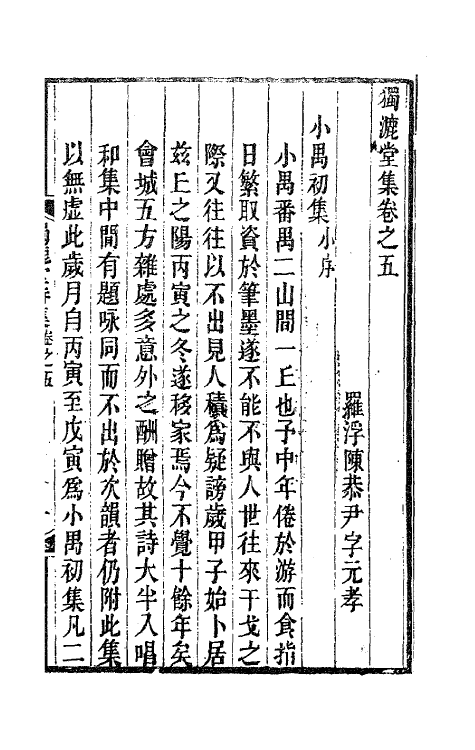 獨漉堂集卷之五
羅浮陳恭尹字元孝
小禺初集小序
小禺番禺二山間一丘也予中年倦於游而食指
日繁取資於筆墨遂不能不與人世往來干戈之
際又往往以不出見人積為疑謗歲甲子始卜居
兹丘之陽丙寅之冬遂移家焉今不覺十餘年矣
會城五方雜處多意外之酬贈故其詩大半入唱
和集中間有題咏同而不出於次韻者仍附此集
以無虛此歲月自丙寅至戊寅爲小禺初集凡二